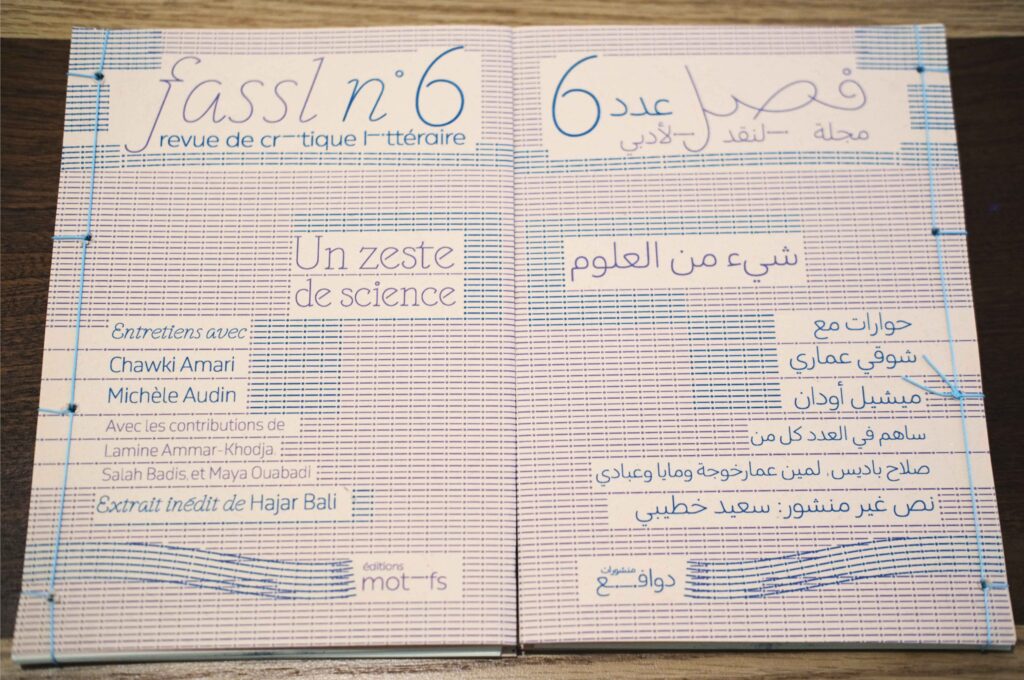 fassl n° 6
revue de cr—tique l—ttéraire
Un zeste
de science
Entretiens avec
Chawki Amari
Michèle Audin
Avec les contributions de
Lamine Ammar-Khodja,
Salah Badis, et Maya Ouabadi
Extrait inédit de Hajar Bali
éditions
mot—fs
فصل عدد 6
مجلة —لنقد —لأدبي
شيء من العلوم
حوارات مع
شوقي عماري
ميشيل أودان
ساهم في العدد كل من
صلاح باديس، لمين عمارخوجة ومايا وعبادي
نص غير منشور: سعيد خطيبي
منشورات
دوافع